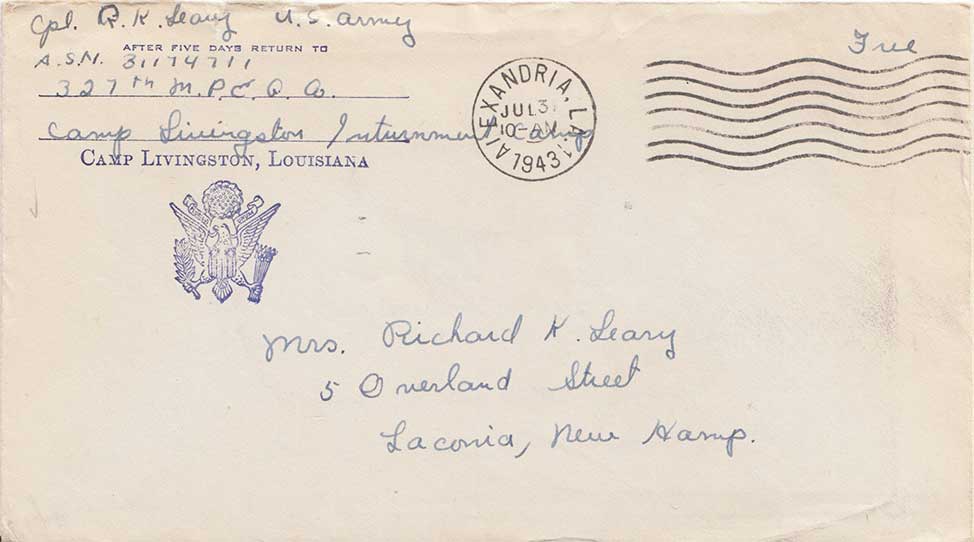 Cpl. R. K. Leary U. S. Army
AFTER FIVE DAYS RETURN TO
A.S.N. 31174711
327th M.P.E.G. Co.
Camp Livingston Internment Camp
CAMP LIVINGSTON, LOUISIANA
Free
ALEXANDRIA, LA.
JUL 3
10 - AM
1943
Mrs. Richard K. Leary
5 Overland Street
Laconia, New Hamp.